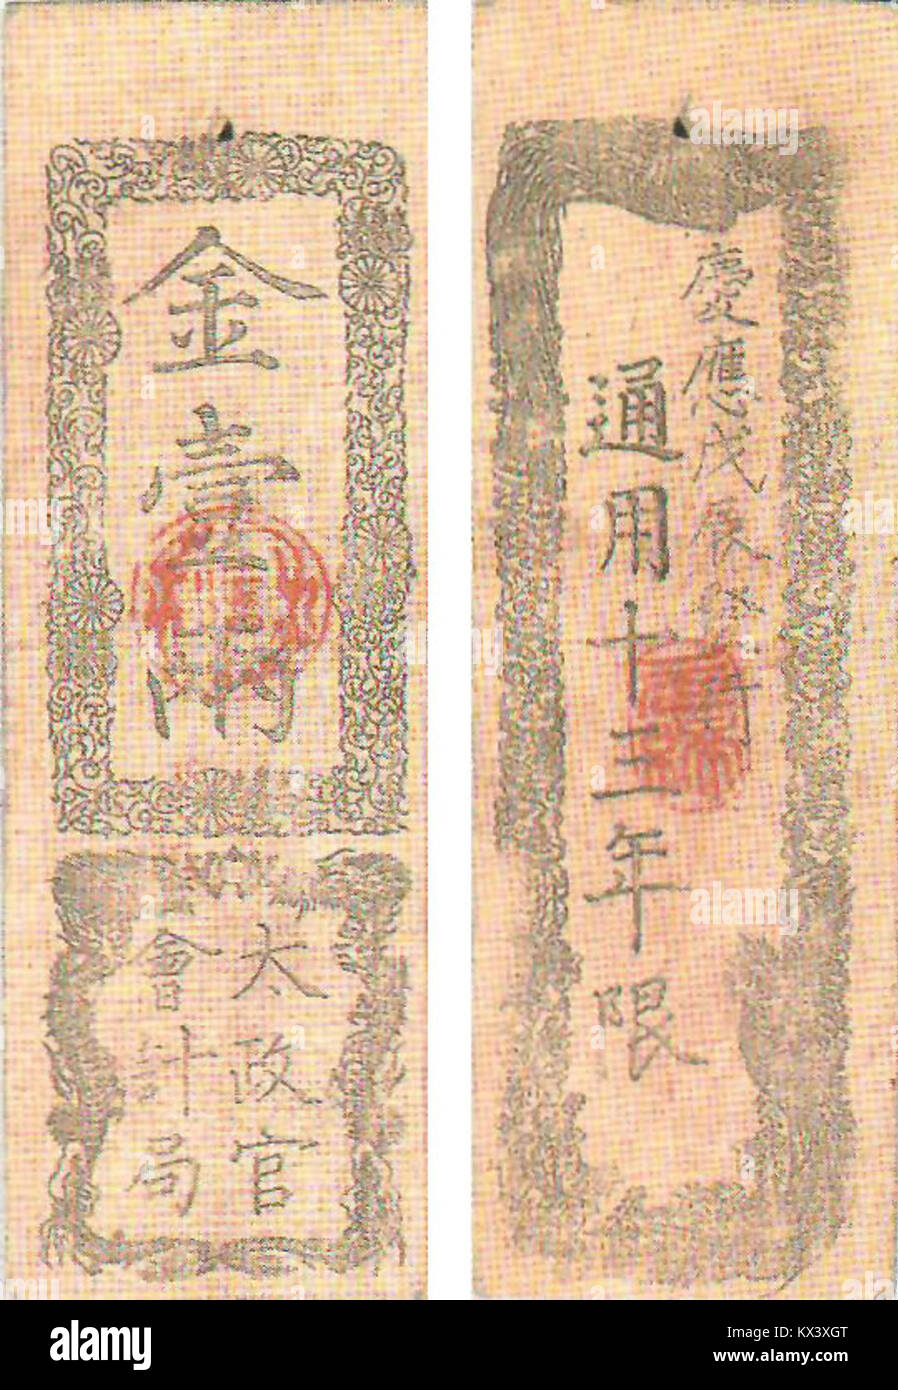 金壹兩
太政官
會計局
慶應戊辰發行
通用十三年限
alamy
Image ID: KX3XGT
www.alamy.com